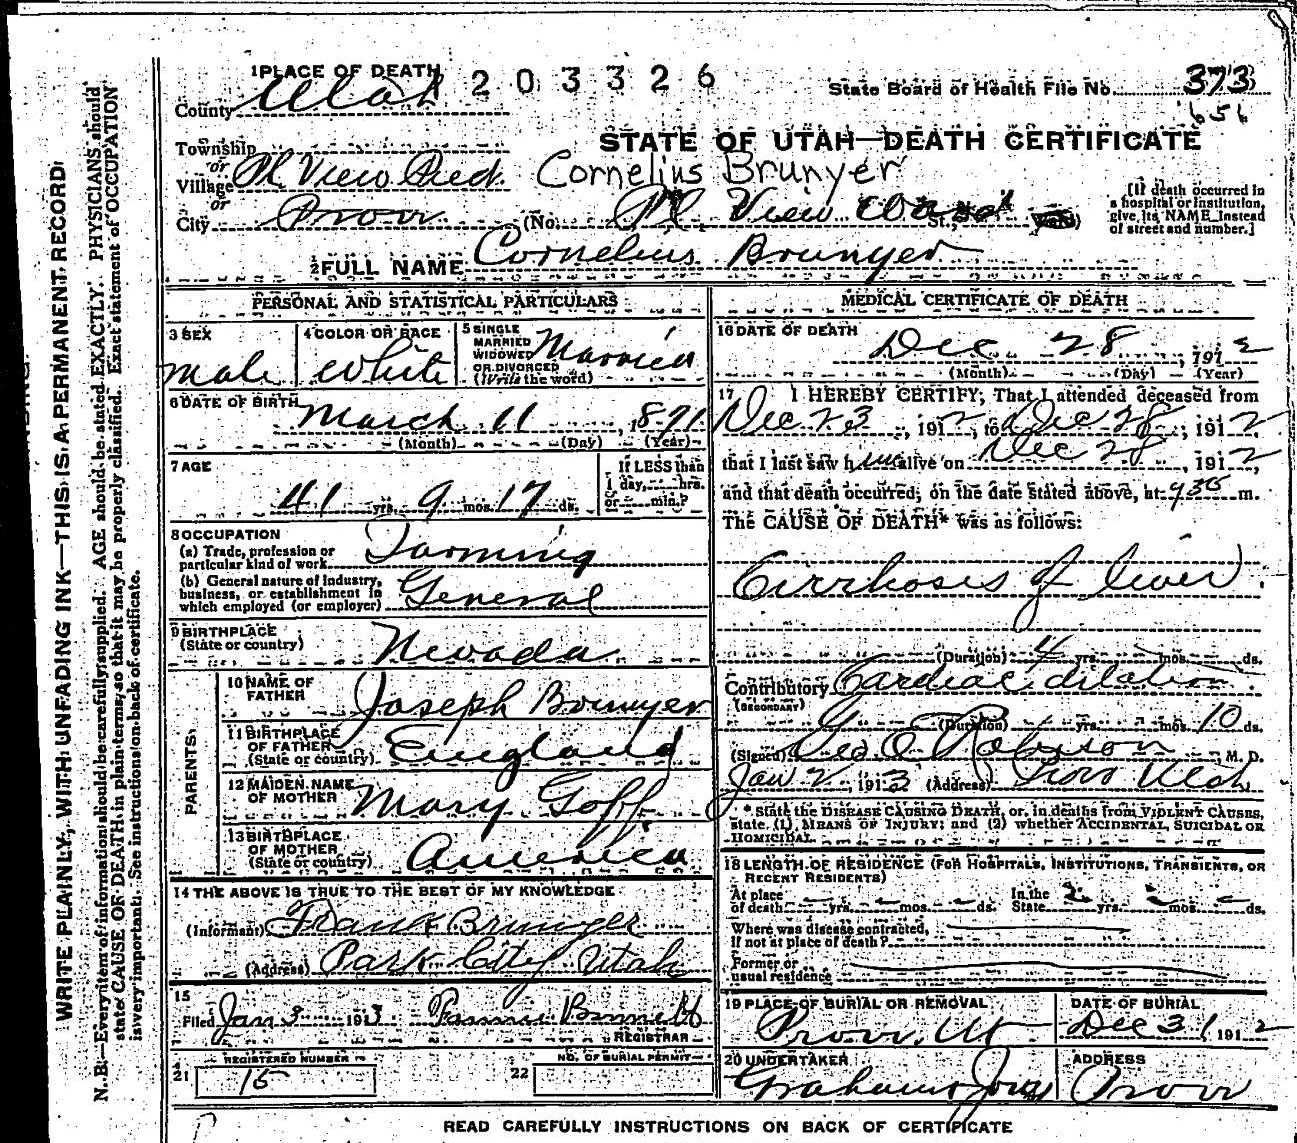 1 PLACE OF DEATH 203326
State Board of Health File No. 373
County Utah
656
STATE OF UTAH—DEATH CERTIFICATE
Township
or
Village Pl View Pred. Cornelius Brunyer
or
City Provo (No. Pl. View St.;
[If death occurred in
a hospital or institution,
give its NAME instead
of street and number.]
2 FULL NAME Cornelius Brunyer
PERSONAL AND STATISTICAL PARTICULARS
3 SEX
male
4 COLOR OR RACE
White
5 SINGLE
MARRIED
WIDOWED
OR DIVORCED
(Write the word)
Married
6 DATE OF BIRTH
March 11, 1871
(Month) (Day) (Year)
7 AGE
41 yrs. 9 mos. 17 ds.
If LESS than
1 day, hrs.
or min.?
8 OCCUPATION
(a) Trade, profession or
particular kind of work Farming
(b) General nature of industry,
business, or establishment in
which employed (or employer) General
9 BIRTHPLACE
(State or country) Nevada
PARENTS
10 NAME OF
FATHER Joseph Brunyer
11 BIRTHPLACE
OF FATHER
(State or country) England
12 MAIDEN NAME
OF MOTHER Mary Goff
13 BIRTHPLACE
OF MOTHER
(State or country) America
14 THE ABOVE IS TRUE TO THE BEST OF MY KNOWLEDGE
(Informant) Frank Brunyer
(Address) Park City Utah
15
Filed Jan 3 1913 Fannie Bennett
REGISTRAR
REGISTERED NUMBER
21 15
NO. OF BURIAL PERMIT
22
MEDICAL CERTIFICATE OF DEATH
16 DATE OF DEATH
Dec 28, 1912
(Month) (Day) (Year)
17 I HEREBY CERTIFY, That I attended deceased from
Dec 23, 1912, to Dec 28, 1912,
that I last saw him alive on Dec 28, 1912
and that death occurred, on the date stated above, at 935 m.
The CAUSE OF DEATH* was as follows:
Cirrhosis of liver.
(Duration) 4 yrs. mos. ds.
Contributory Cardiac dilation.
(SECONDARY)
(Duration) yrs. mos. 10 ds.
(Signed) Geo O Robison, M. D.
Jan 2, 1913 (Address) Provo Utah
* State the DISEASE CAUSING DEATH, or, in deaths from VIOLENT CAUSES,
state (1) MEANS OF INJURY; and (2) whether ACCIDENTAL, SUICIDAL OR
HOMICIDAL.
18 LENGTH OF RESIDENCE (FOR HOSPITALS, INSTITUTIONS, TRANSIENTS, OR
RECENT RESIDENTS)
At place
of death yrs. mos. ds.
In the
State yrs. mos. ds.
Where was disease contracted,
if not at place of death?
Former or
usual residence
19 PLACE OF BURIAL OR REMOVAL
Provo, Ut
DATE OF BURIAL
Dec 31 1912
20 UNDERTAKER
Graham
ADDRESS
Provo
READ CAREFULLY INSTRUCTIONS ON BACK OF CERTIFICATE
WRITE PLAINLY, WITH UNFADING INK—THIS IS A PERMANENT RECORD
N. B.—Every item of information should be carefully supplied. AGE should be stated EXACTLY. PHYSICIANS should
state CAUSE OF DEATH in plain terms, so that it may be properly classified. Exact statement of OCCUPATION
is very important. See instructions on back of certificate.